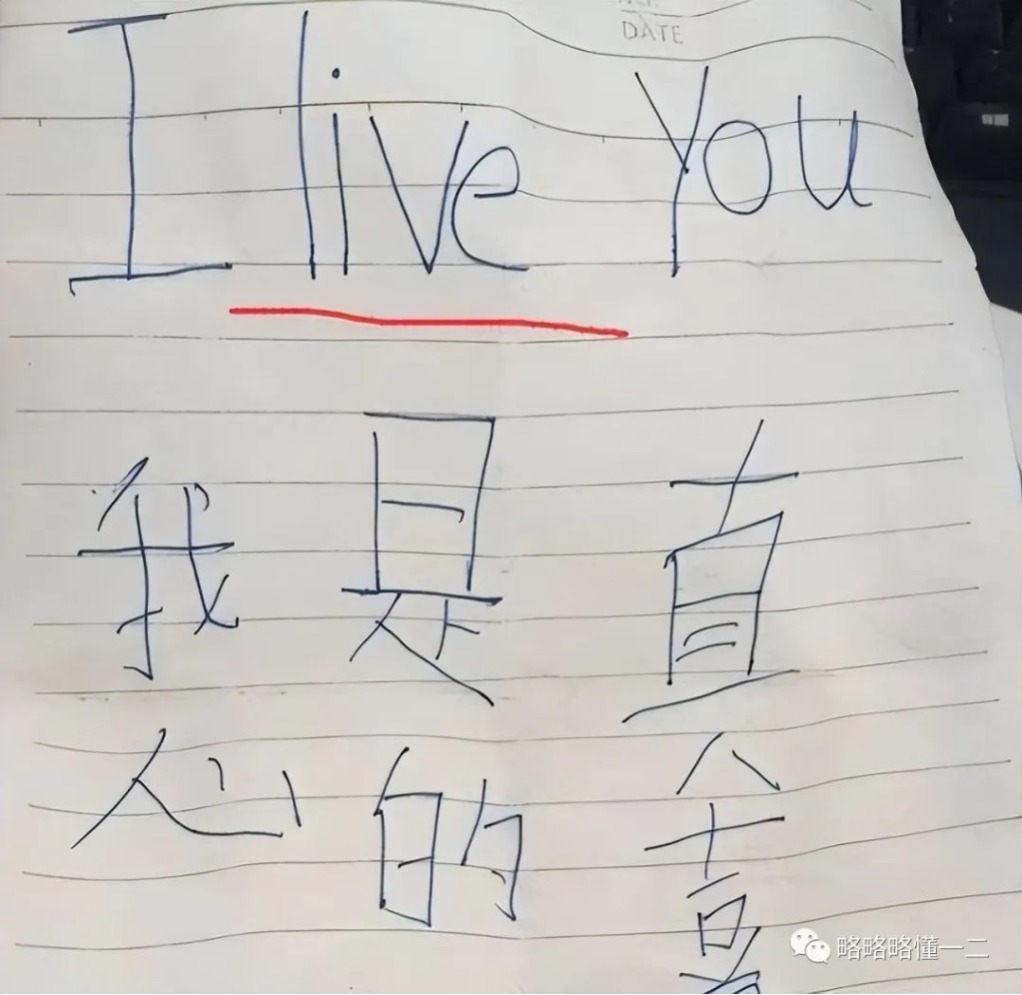 DATE
I live You
我是真
心的喜
略略略懂一二